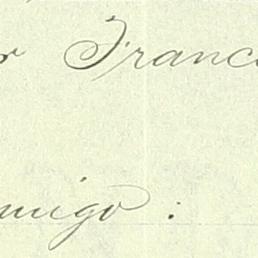 r Franc
migo: